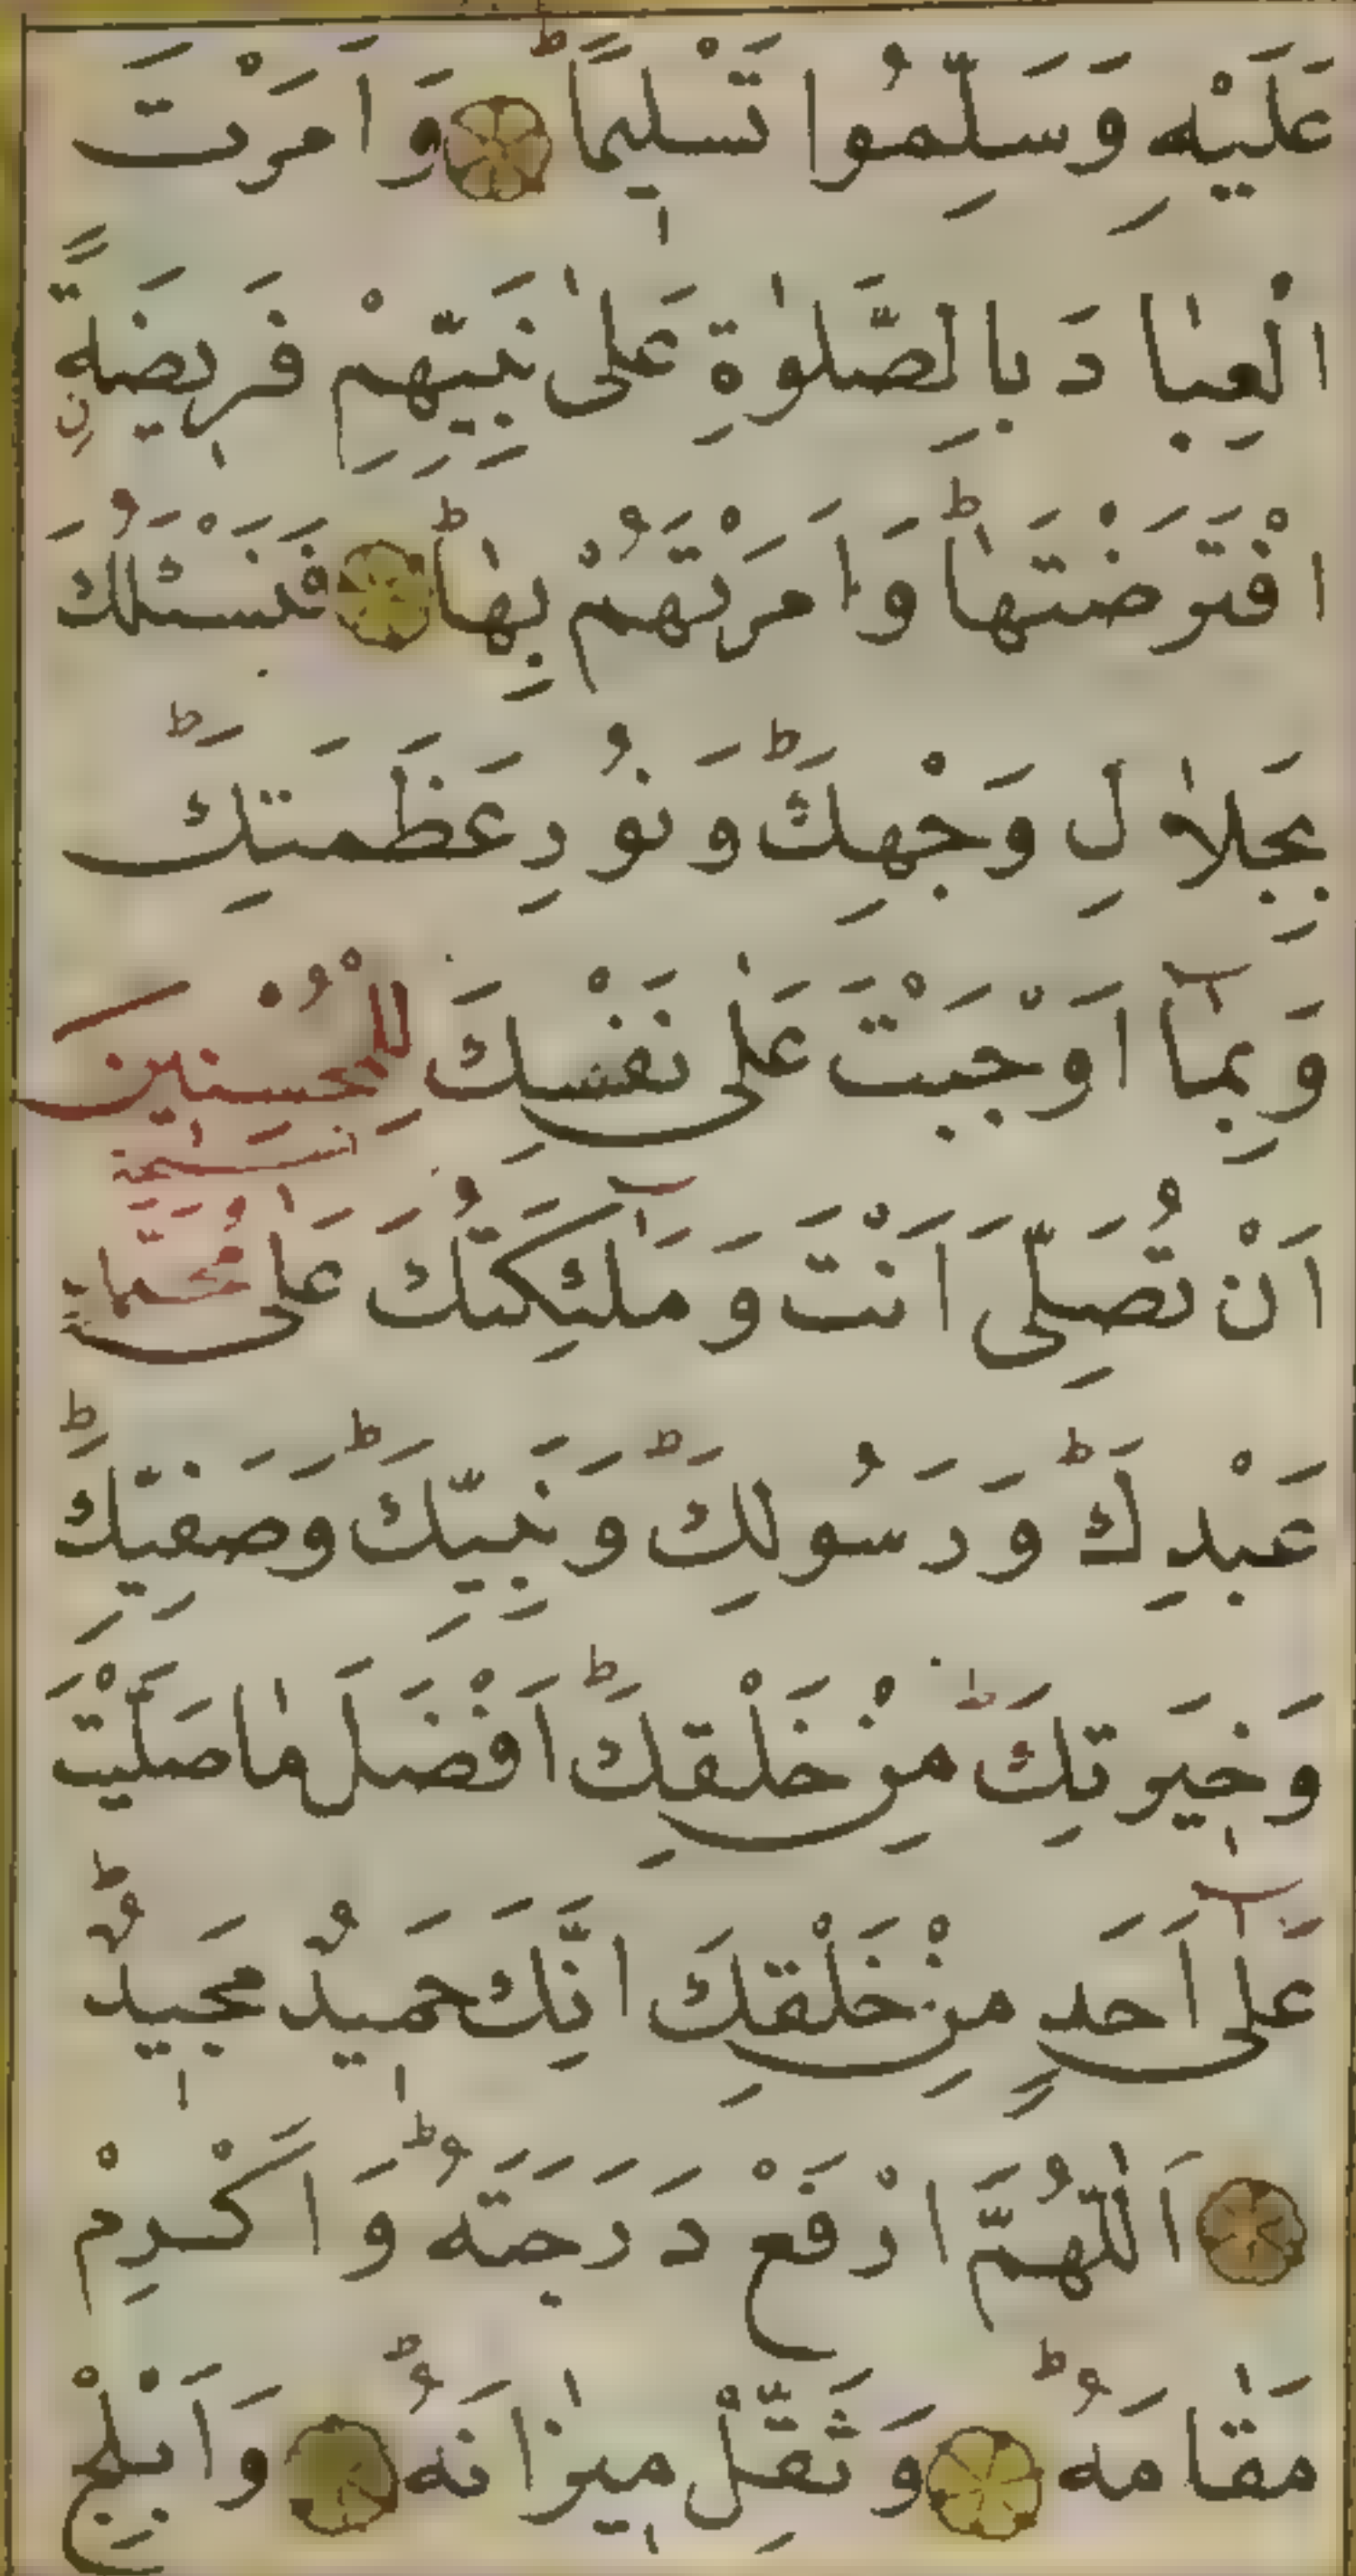 عَلَيْهِ وَسَلِّمُوا تَسْلِيمًا ۞ وَاَمَرْتَ
الْعِبٰادَ بِالصَّلوٰةِ عَلىٰ نَبِيِّهِمْ فَرِيضَةً
افْتَرَضْتَهٰا وَاَمَرْتَهُمْ بِهٰا ۞ فَنَسْئَلُكَ
بِجَلاٰلِ وَجْهِكَ وَنُورِ عَظَمَتِكَ
وَبِمٰٓا اَوْجَبْتَ عَلىٰ نَفْسِكَ لِلْمُحْسِنِينَ
اَنْ تُصَلِّىَ اَنْتَ وَمَلٰٓئِكَتُكَ عَلىٰ مُحَمَّدٍ
عَبْدِكَ وَرَسُولِكَ وَنَبِيِّكَ وَصَفِيِّكَ
وَخِيَرَتِكَ مِنْ خَلْقِكَ اَفْضَلَ مٰا صَلَّيْتَ
عَلىٰٓ اَحَدٍ مِنْ خَلْقِكَ اِنَّكَ حَمِيدٌ مَجِيدٌ
۞ اَللّٰهُمَّ ارْفَعْ دَرَجَتَهُ وَاَكْرِمْ
مَقٰامَهُ ۞ وَثَقِّلْ مِيزٰانَهُ ۞ وَاَبْلِجْ